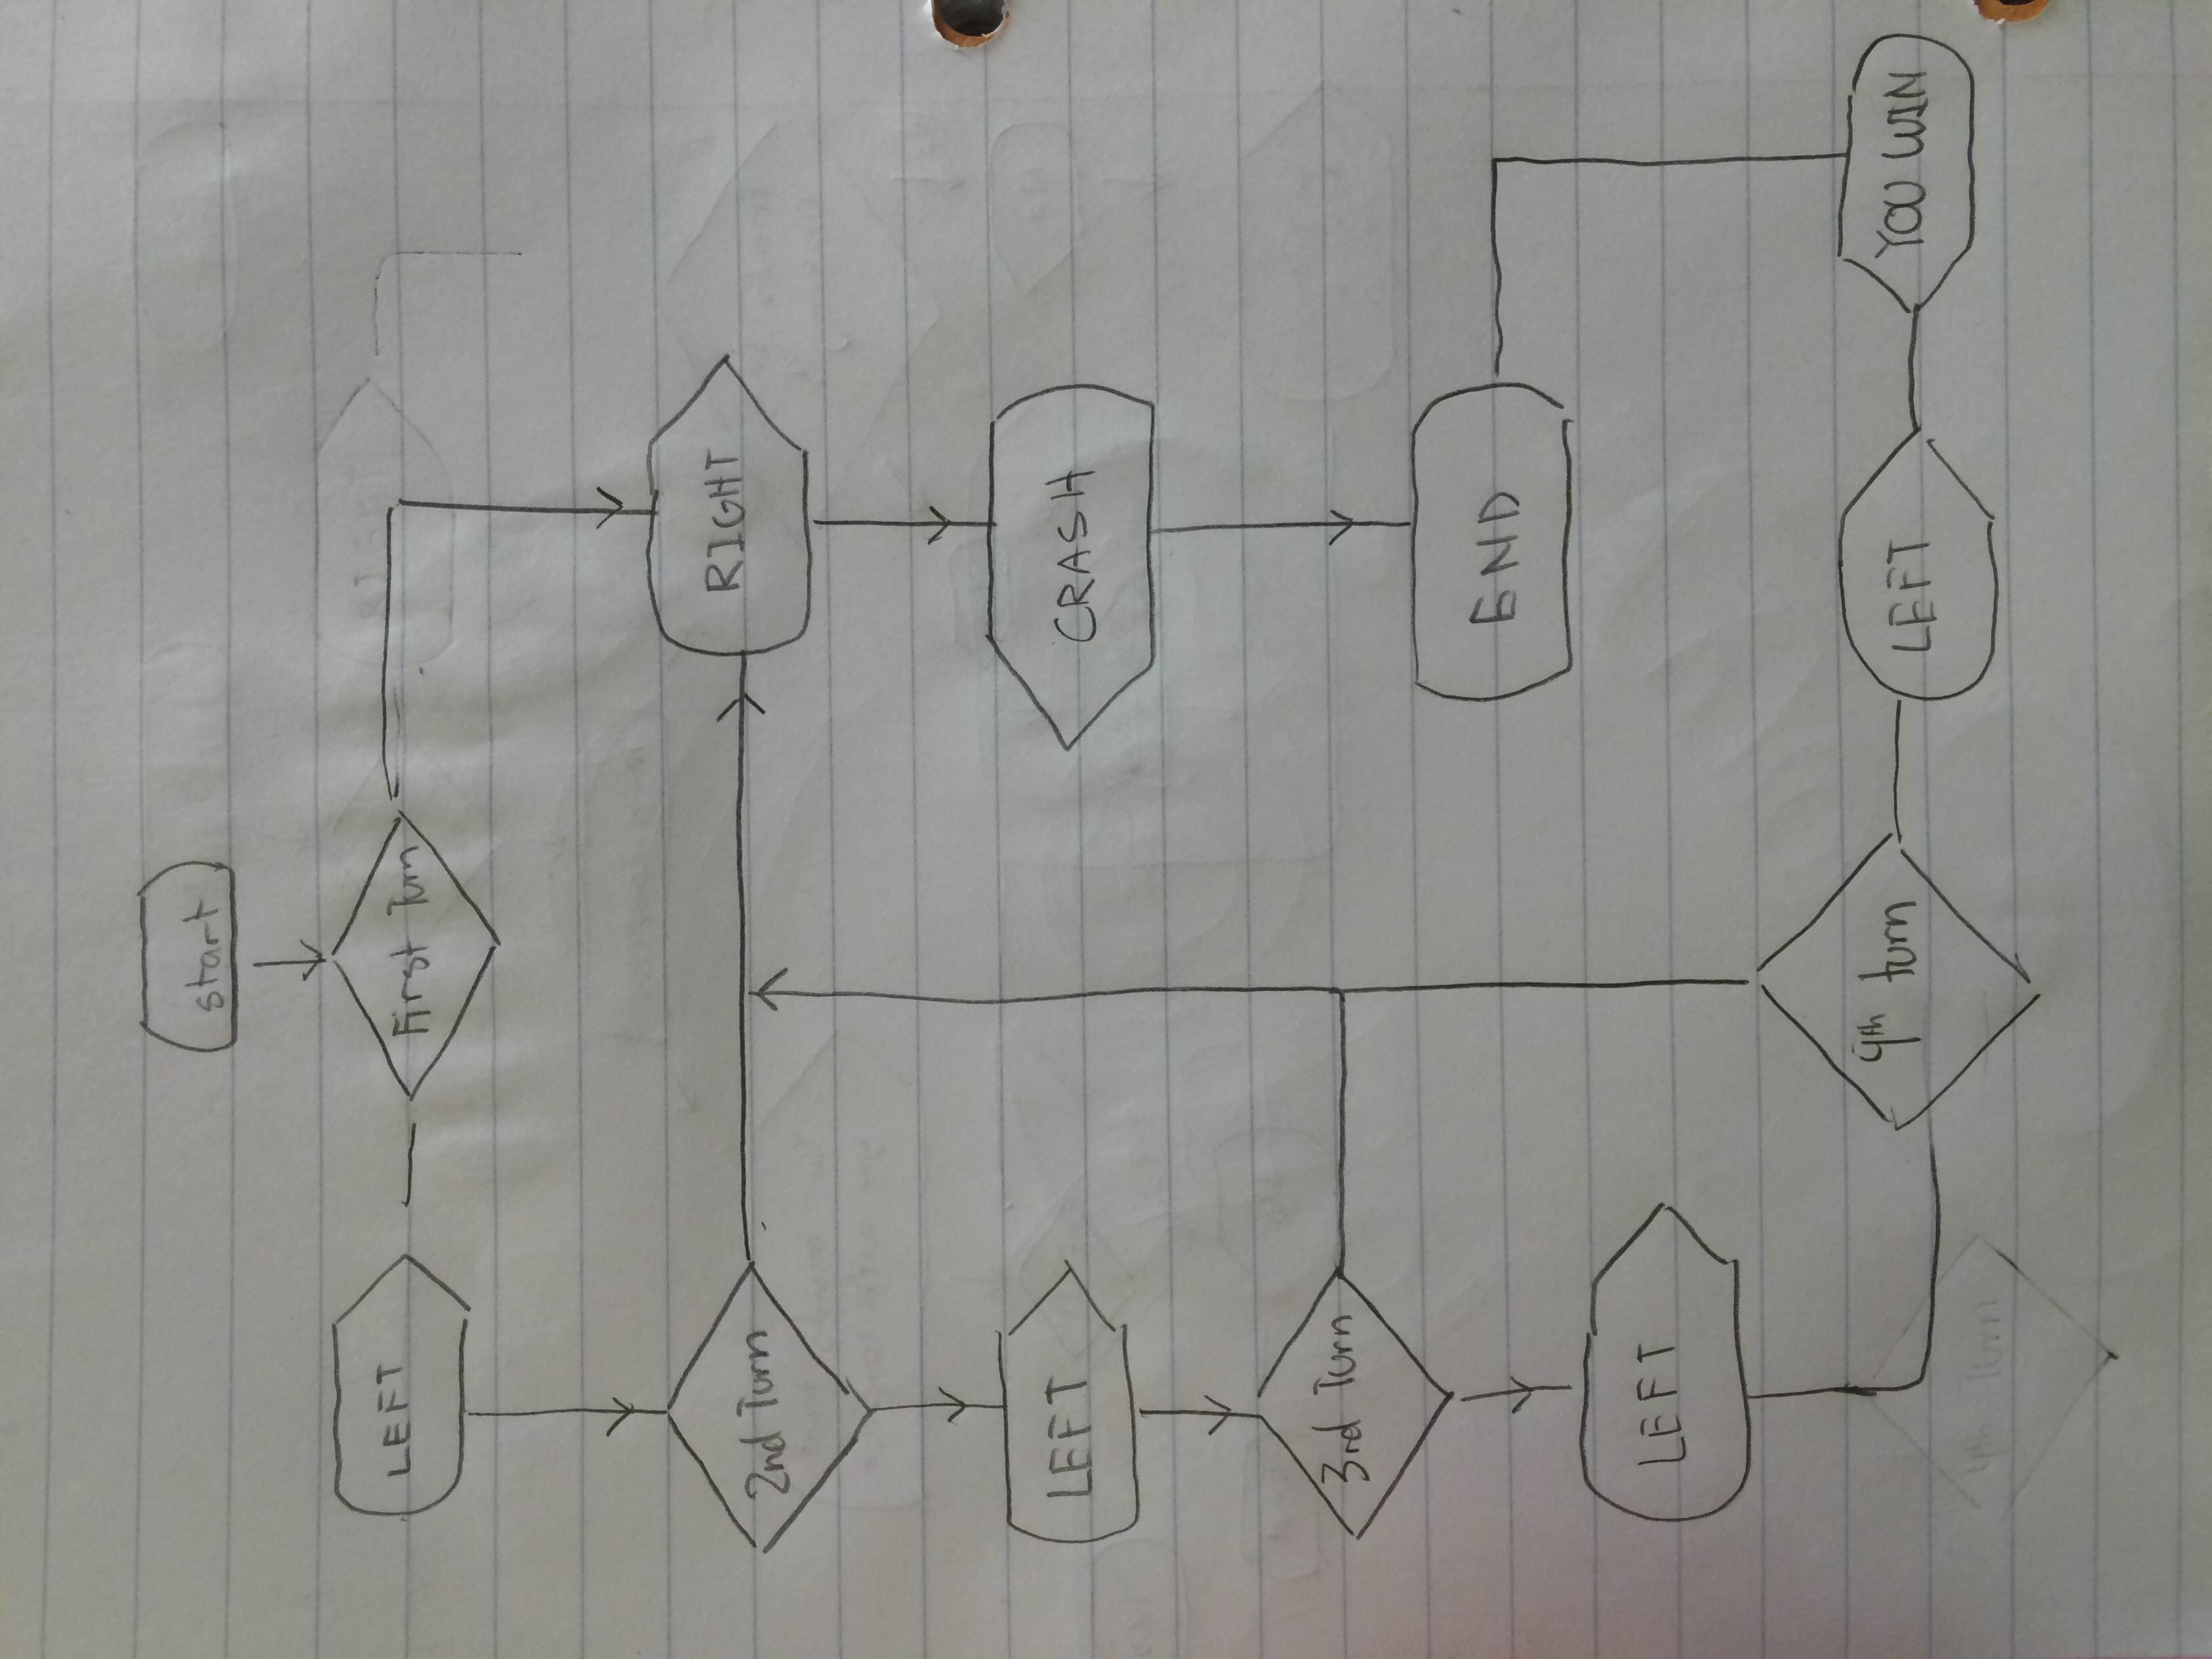 start
LEFT
First Turn
RIGHT
2nd Turn
RIGHT
LEFT
CRASH
3rd Turn
END
LEFT
4th turn
LEFT
YOU WIN
4th Turn